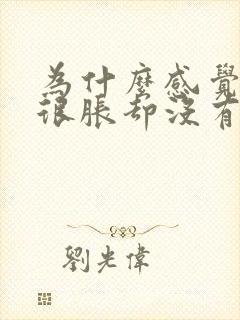 為什麼感覺
很脹却沒有
劉光偉